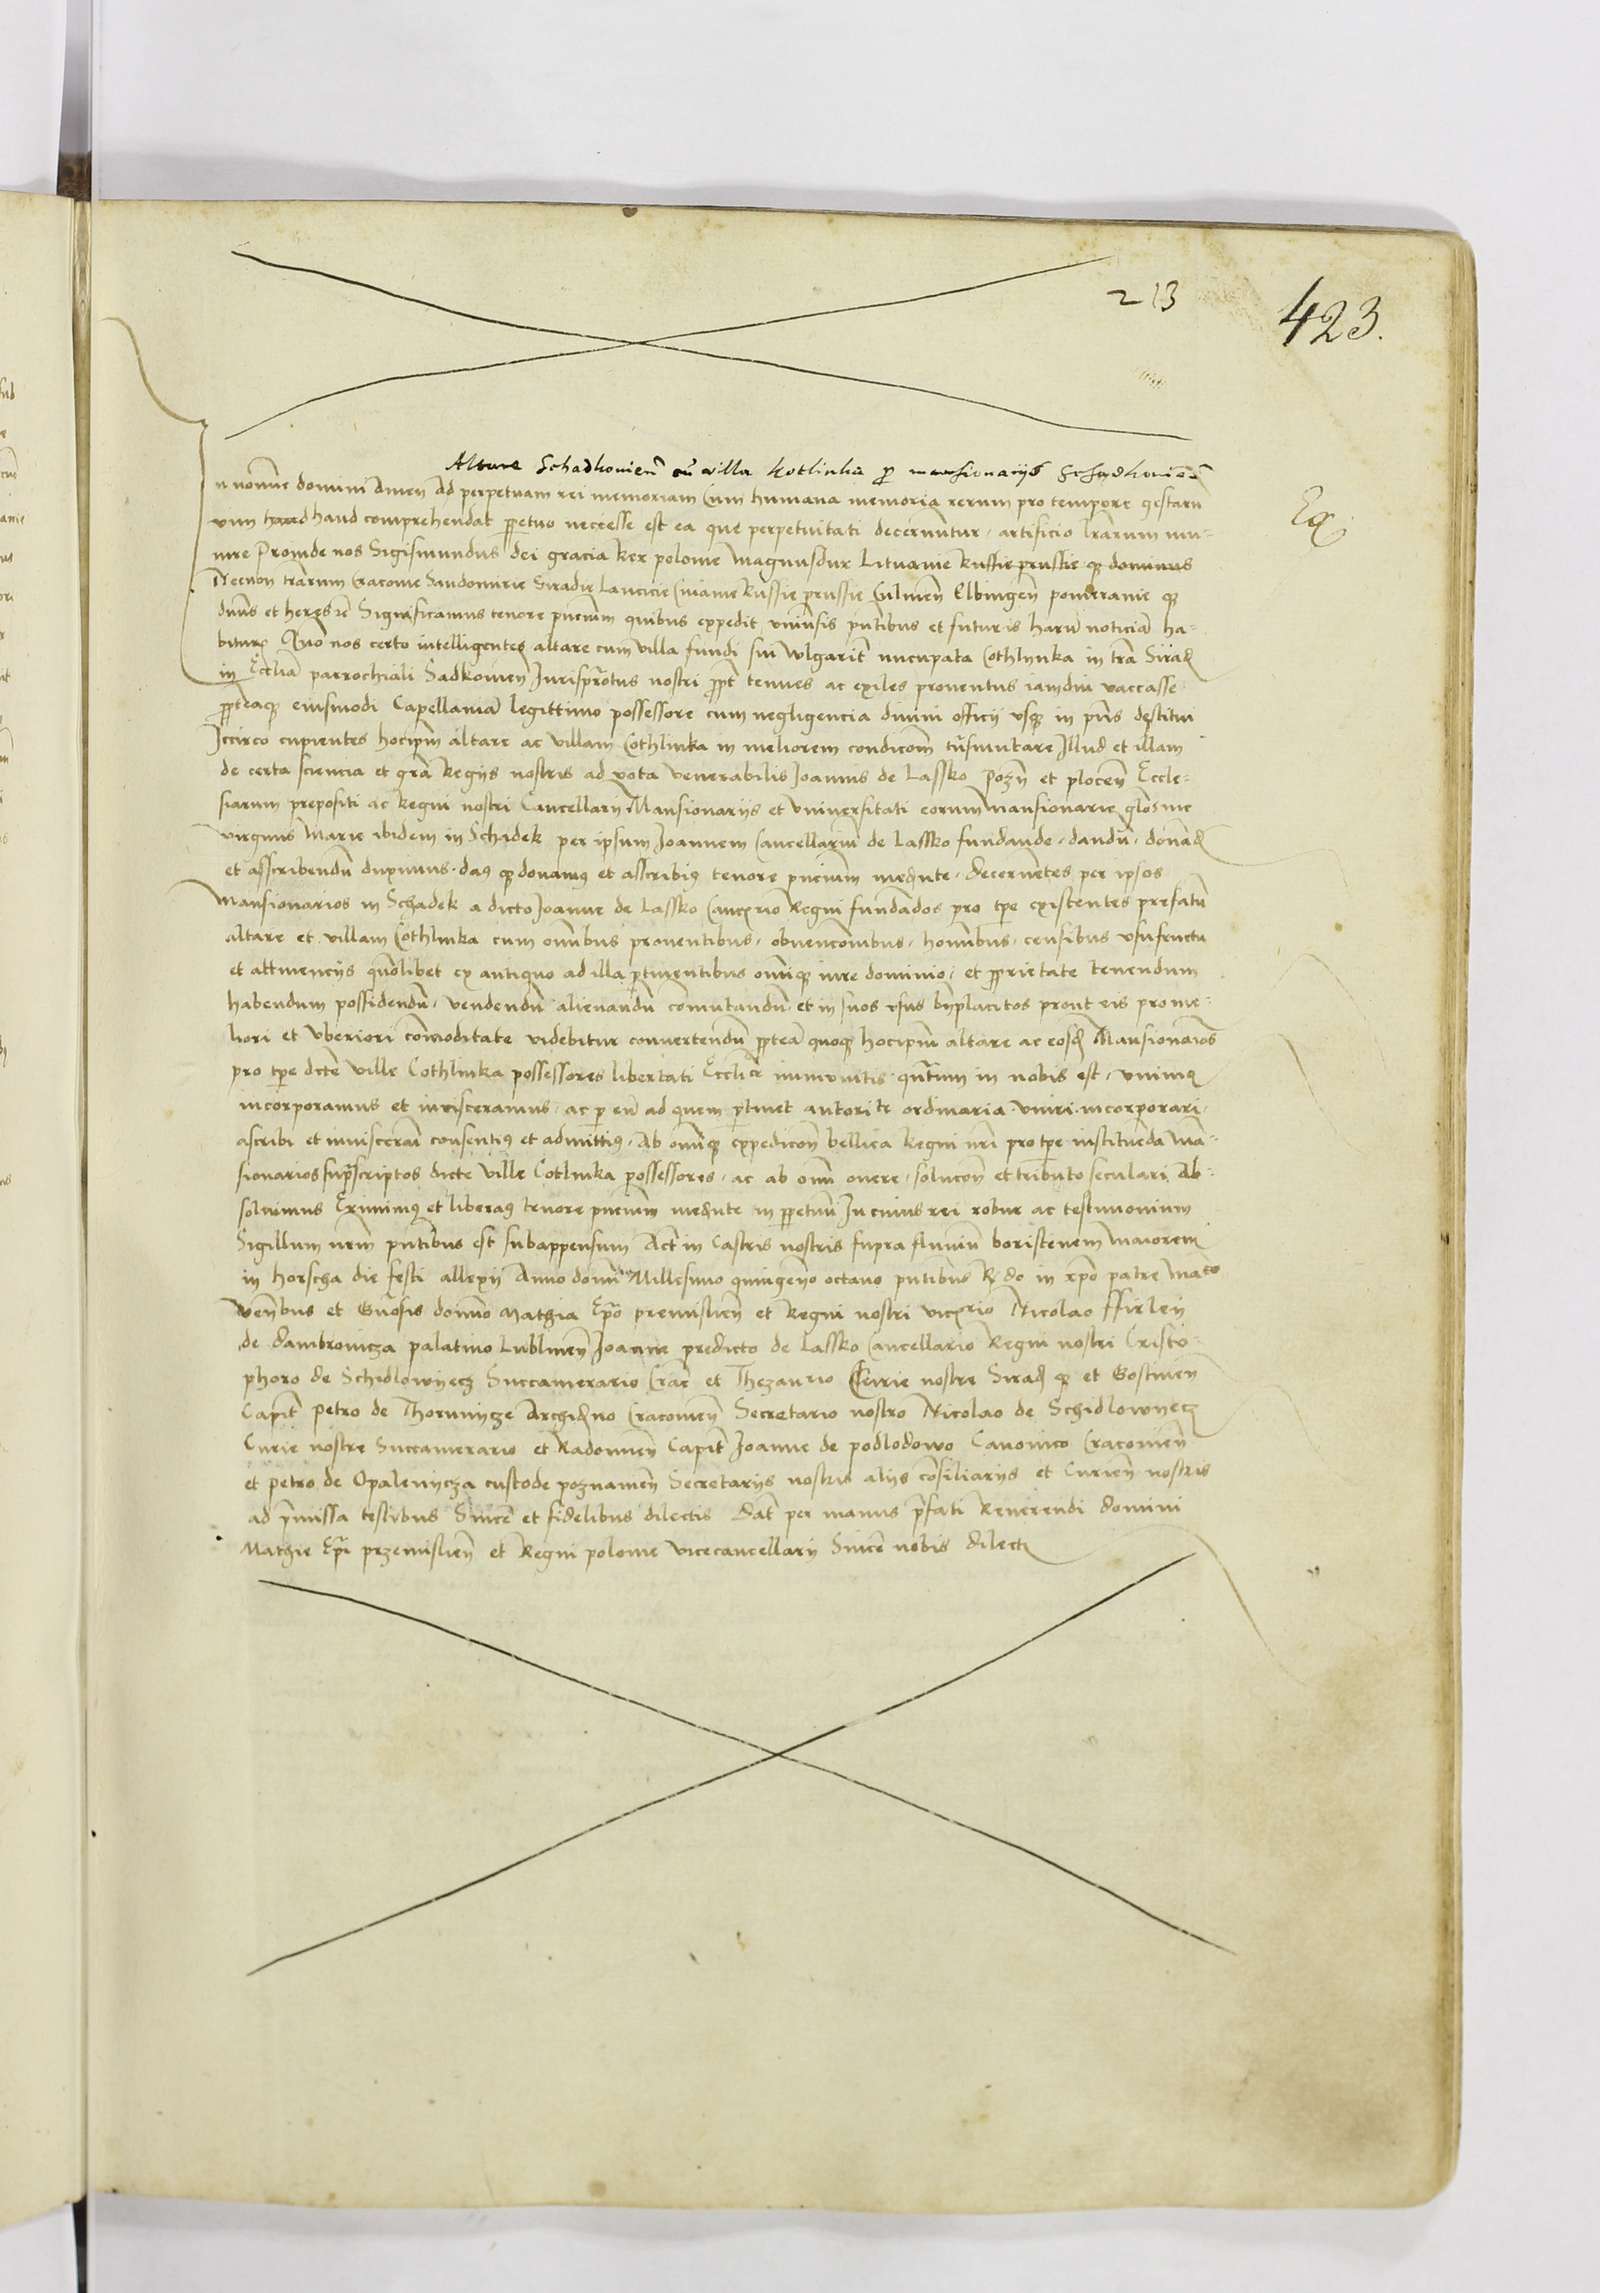 213
423.
Altare Schadkovien̄ cū villa kotlinka p mansionarijs Schadkovien̄
n nomine domini Amen Ad perpetuam rei memoriam Cum humana memoria rerum pro tempore gestarū
haud comprehendat ꝑpetuo necesse est ea que perpetuitati decernuntur, artificio lr̄arum mu-
nire Proinde nos Sigismundus dei gracia Rex polonie Magnusdux Lituanie Russie prussie qȝ dominus
Necnon tr̄arum Cracovie Sandomirie Siradie Lancicie Cuiavie Russie prussie Culmen̄ Elbingen̄ pomeranie qȝ
dn̄us et heres rc̄ Significamus tenore pn̄cium quibus expedit vniūsis pn̄tibus et futuris harū noticiā ha-
bituri Quo nos certo intelligentes altare cum villa fundi sui wlgarit̄ nucupata Cothlynka in tr̄a Sirad̄
in Eccl̄ia parrochiali Sadkovien̄ Jurisprōtus nostri ꝓpt̄ tenues ac exiles proventus iamdiu vaccasse
ꝓpt̄eaqȝ eiusmodi Capellaniā legittimo possessore cum negligencia divini officij vsqȝ in pn̄s destitui
Jccirco cupientes hocip̄m altare ac villam Cothlinka in meliorem condicōm trāsmutare Illud et illam
de certa sciencia et gr̄a Regijs nostris ad vota venerabilis Joannis de Lassko Pozn̄ et plocen̄ Eccle-
siarum prepositi ac Regni nostri Cancellarij Mansionarijs et vniversitati eorum mansionarie glōsme
virginis Marie ibidem in Schadek per ipsum Joannem Cancellariū de Lassko fundande, dandū, donād̄
et asscribendū duximus, damȝ qȝ donamȝ et asscribimȝ tenore pn̄cium med̄nte, decernētes per ipsos
Mansionarios in Schadek a dicto Joanne de Lassko Cancrio Regni fundandos pro tp̄e existentes prefatū
altare et villam Cothlinka cum om̄ibus proventibus, obvencōnibus, hom̄ibus, censibus vsufructu
et attinencijs quōlibet ex antiquo ad illa ꝑtinentibus om̄iqȝ iure dominio, et ꝓprietate tenendum
habendum possidendū, vendendū alienandū com̄utandū, et in suos vsus bn̄placitos prout eis pro me-
liori et vberiori com̄oditate videbitur convertendū ꝓpt̄ea quoqȝ hocip̄m altare ac eosd̄ Mansionarios
pro tp̄e dcte ville Cothlinka possessores libertati Eccl̄ie inmunitis, qn̄tum in nobis est, vnimȝ
incorporamus et invisceramus, ac p eū ad quem ꝑtinet autorit̄e ordinaria, vniri, incorporari,
ascribi et inviscerari consentimȝ et admittimȝ, Ab om̄iqȝ expedicōn̄ bellica Regni nr̄i pro tp̄e instituēda mā-
sionarios supr̄scriptos dicte ville Cotlinka possessores, ac ab om̄i onere, solucōn̄ et tributo seculari Ab-
solvimus Eximimȝ et liberamȝ tenore pn̄cium med̄nte in ꝑpetuū In cuius rei robur ac testimonium
Sigillum nr̄m pn̄tibus est subappensum Act̄ in Castris nostris supra fluviū boristenem Maiorem
in horscha die festi allexij Anno domī Millesimo quingen̄o octavo pn̄tibus R̄do in xp̄o patre Mag̃co
ven̄bus et Gn̄osis domīo Mathia Ep̄o premislien̄ et Regni nostri vicc̃rio Nicolao ffirley
de dambrovicza palatino Lublinen̄ Joanne predicto de Lassko Cancellario Regni nostri Cristo-
phoro de Schidlowyecz Succamerario Crac̄ et Thezaurio Curie nostre Sirad̄ qȝ et Gostinien̄
Capit̄ petro de Thomicze Archid̄no Cracovien̄ Secretario nostro Nicolao de Schidlowyecz
Curie nostre Succamerario et Radomien̄ Capit̄ Joanne de podlodowo Canonico Cracovien̄
et petro de Opalenycza custode poznanien̄ Secretarijs nostris alijs cōsiliarijs et Curien̄ nostris
ad p̄missa testibus Sincē et fidelibus dilectis Dat̄ per manus p̄fati Reverendi domini
Mathie Ep̄i przemislien̄ et Regni polonie vicecancellarij Sincē nobis dilecti